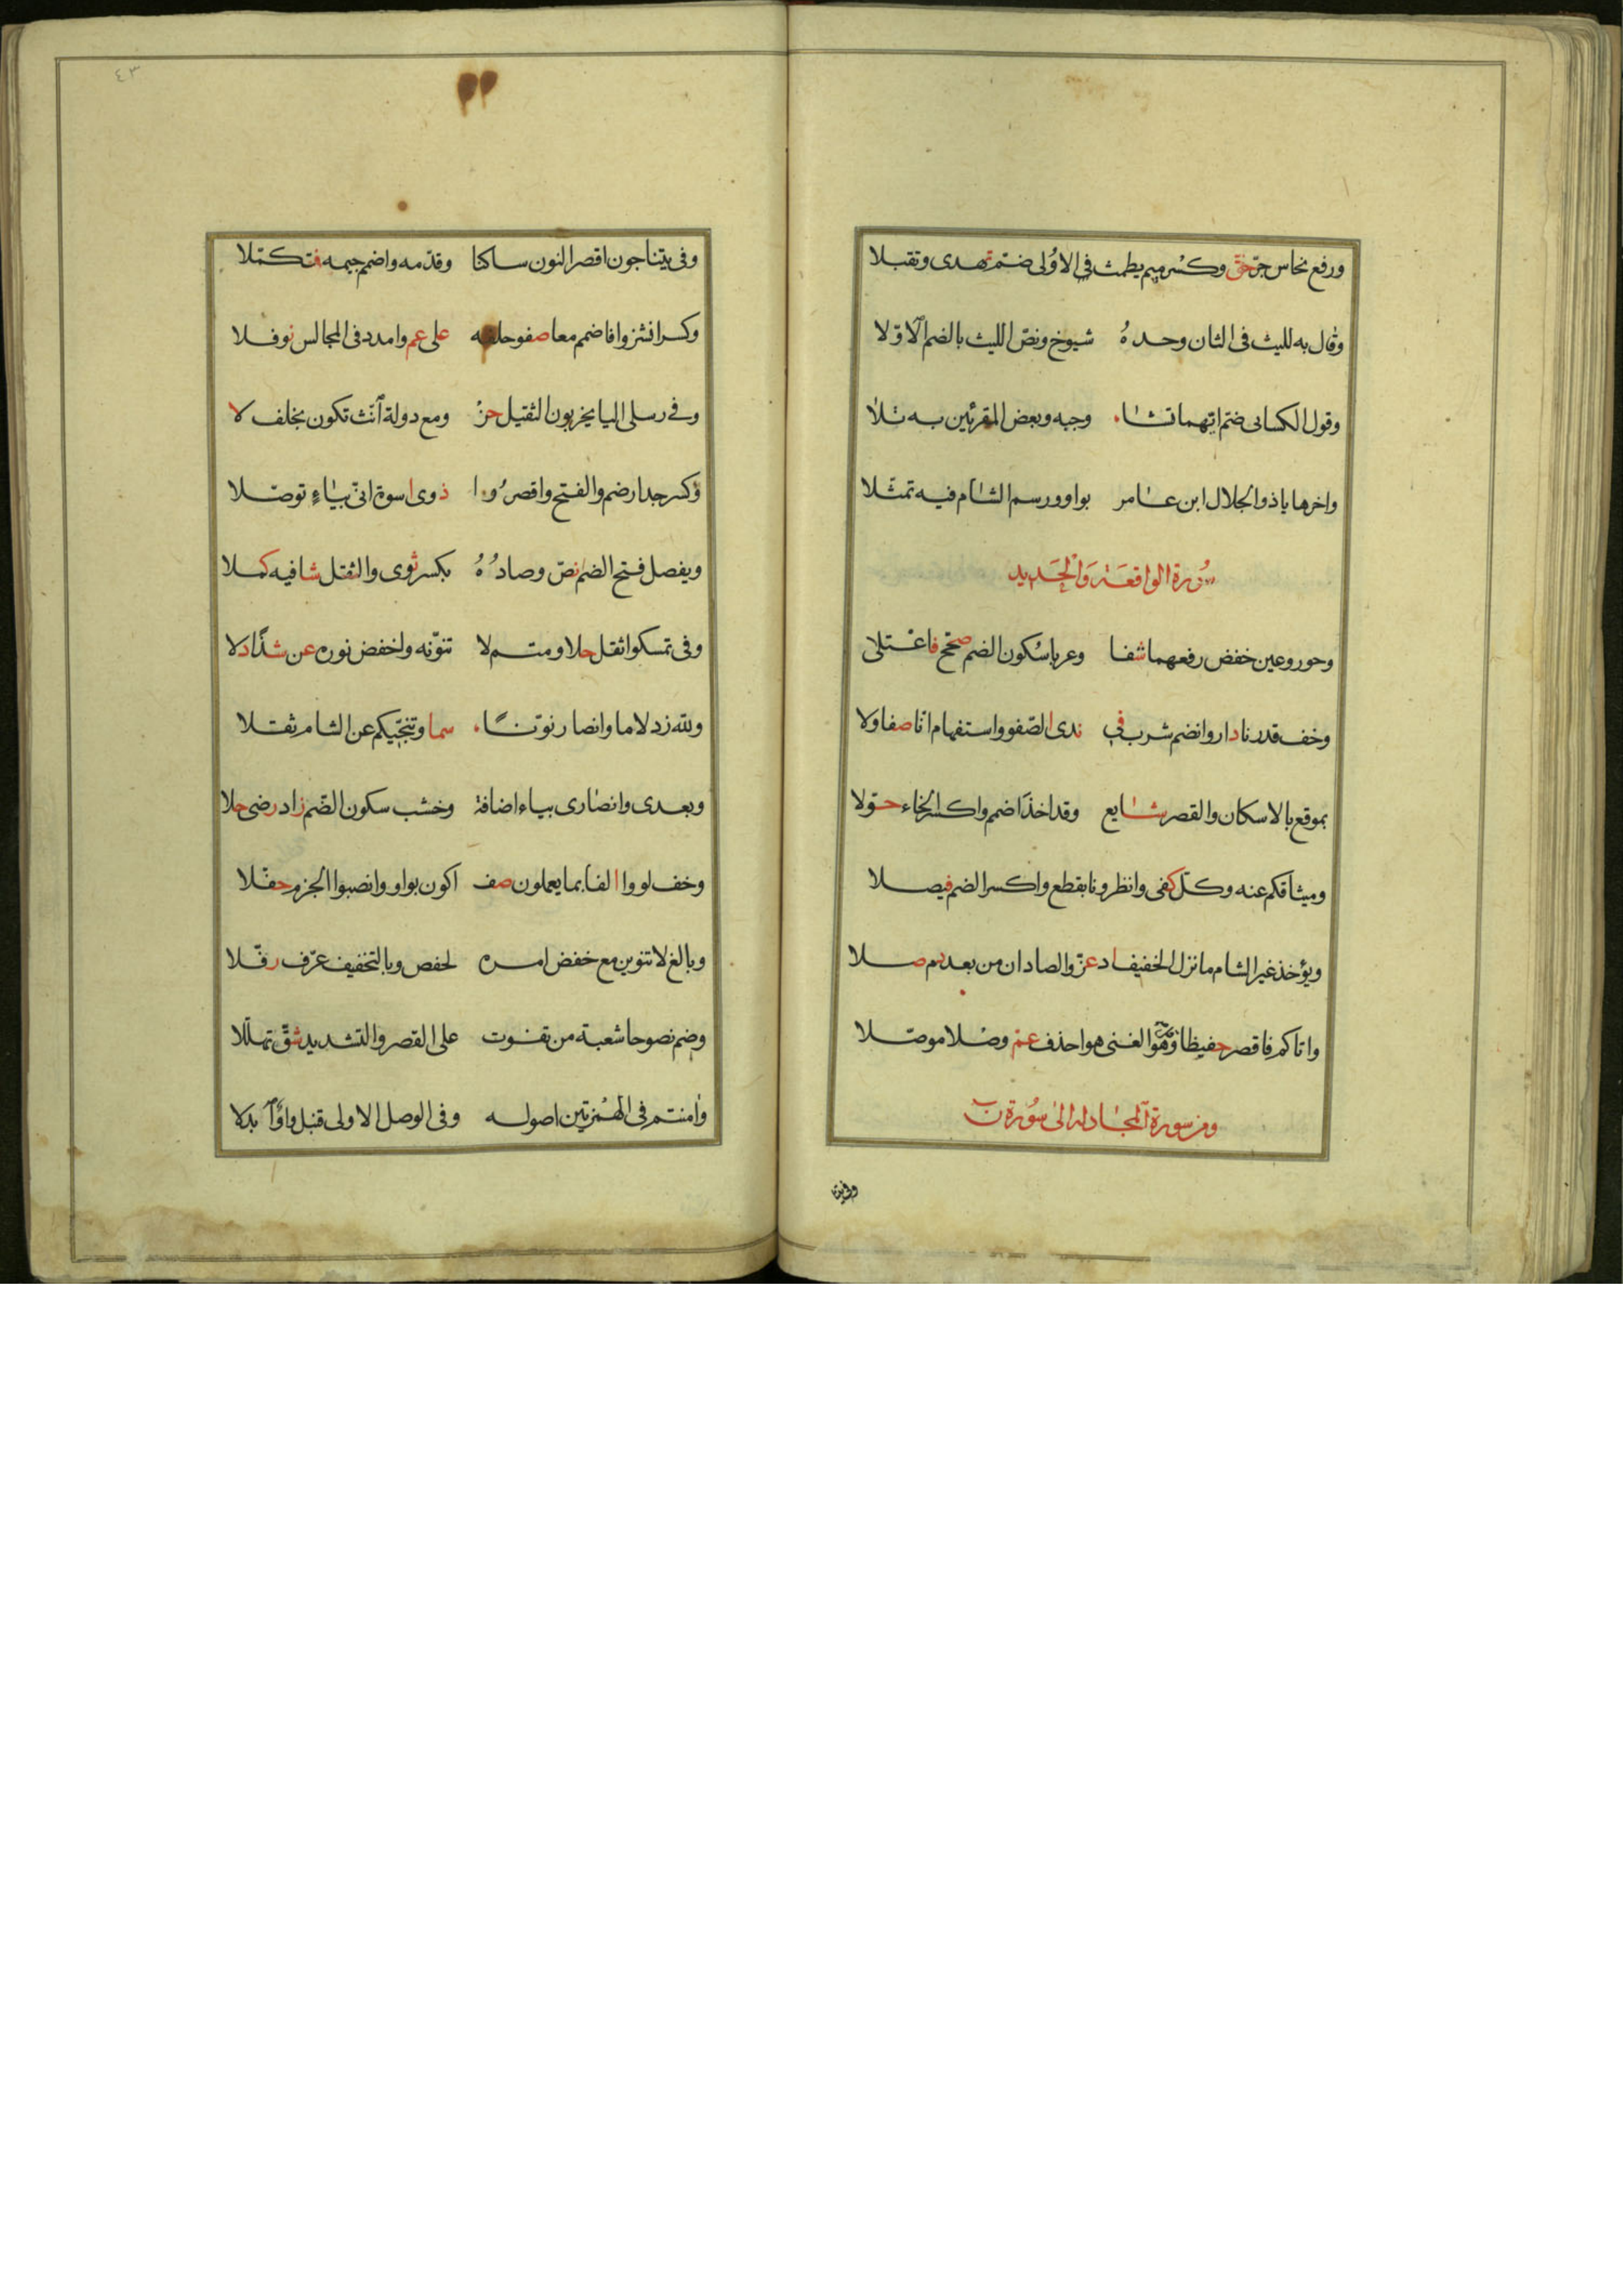 ورفع نحاس جرّ حقّ وكسر ميم يطمث فى الاولى ضمّ تهدى وتقبلا
وقال به لليث فى الثان وحده شيوخ ونصّ الليث بالضم الاوّلا
وقول الكسائى ضمّ ايّهما تشاء وجيه وبعض المقرئين به تلا
واخرها ياذو الجلال ابن عامر بواو ورسم الشام فيه تمثّلا
سورة الواقعة والحديد
وحور وعين خفض رفعهما شفا وعربا سكون الضم صحّح فاعتلى
وخف قدرنا دار وانضم شرب فى ندى الصّفو واستفهام انّا صفا ولا
بموقع بالاسكان والقصر شايع وقد اخذ اضمم واكسر الخاء حوّلا
وميثاقكم عنه وكلّ كفى وانظرونا بقطع واكسر الضم فيصلا
ويؤخذ غير الشام ما نزل الخفيف اد عزّ والصادان من بعد دم صلا
واتاكم فاقصر حفيظا وقل هو الغنى هو احذف عمّ وصلا موصّلا
ومن سورة المجادلة الى سورة ن
وفى يتناجون اقصر النون ساكنا وقدّمه واضمم جيمه فتكمّلا
وكسر انشزوا فاضمم معا صفو خلفه على عم وامدد فى المجالس نوفلا
وفى رسلى اليا يخربون الثقيل حز ومع دولة انّث تكون بخلف لا
وكسر جدار ضم والفتح واقصروا ذوى اسوة انى بياء توصّلا
ويفصل فتح الضم نصّ وصاده بكسر ثوى والثقل شافيه كملا
وفى تمسكوا ثقل حلا ومتم لا تنوّنه واخفض نوره عن شذا دلا
ولله زد لاما وانصار نوّنا سما وتنجّيكم عن الشام ثقلا
وبعدى وانصارى بياء اضافة وخشب سكون الضّم زاد رضى حلا
وخف لووا الفا بما يعملون صف اكون بواو وانصبوا الجزم حفّلا
وبالغ لا تنوين مع خفض امره لحفص وبالتخفيف عرّف رفّلا
وضم نصوحا شعبة من تفوت على القصر والتشديد شقّ تهلّلا
وامنتم فى الهمزتين اصوله وفى الوصل الاولى قنبل واوًا ابدلا
وفى يتنا
٤٣